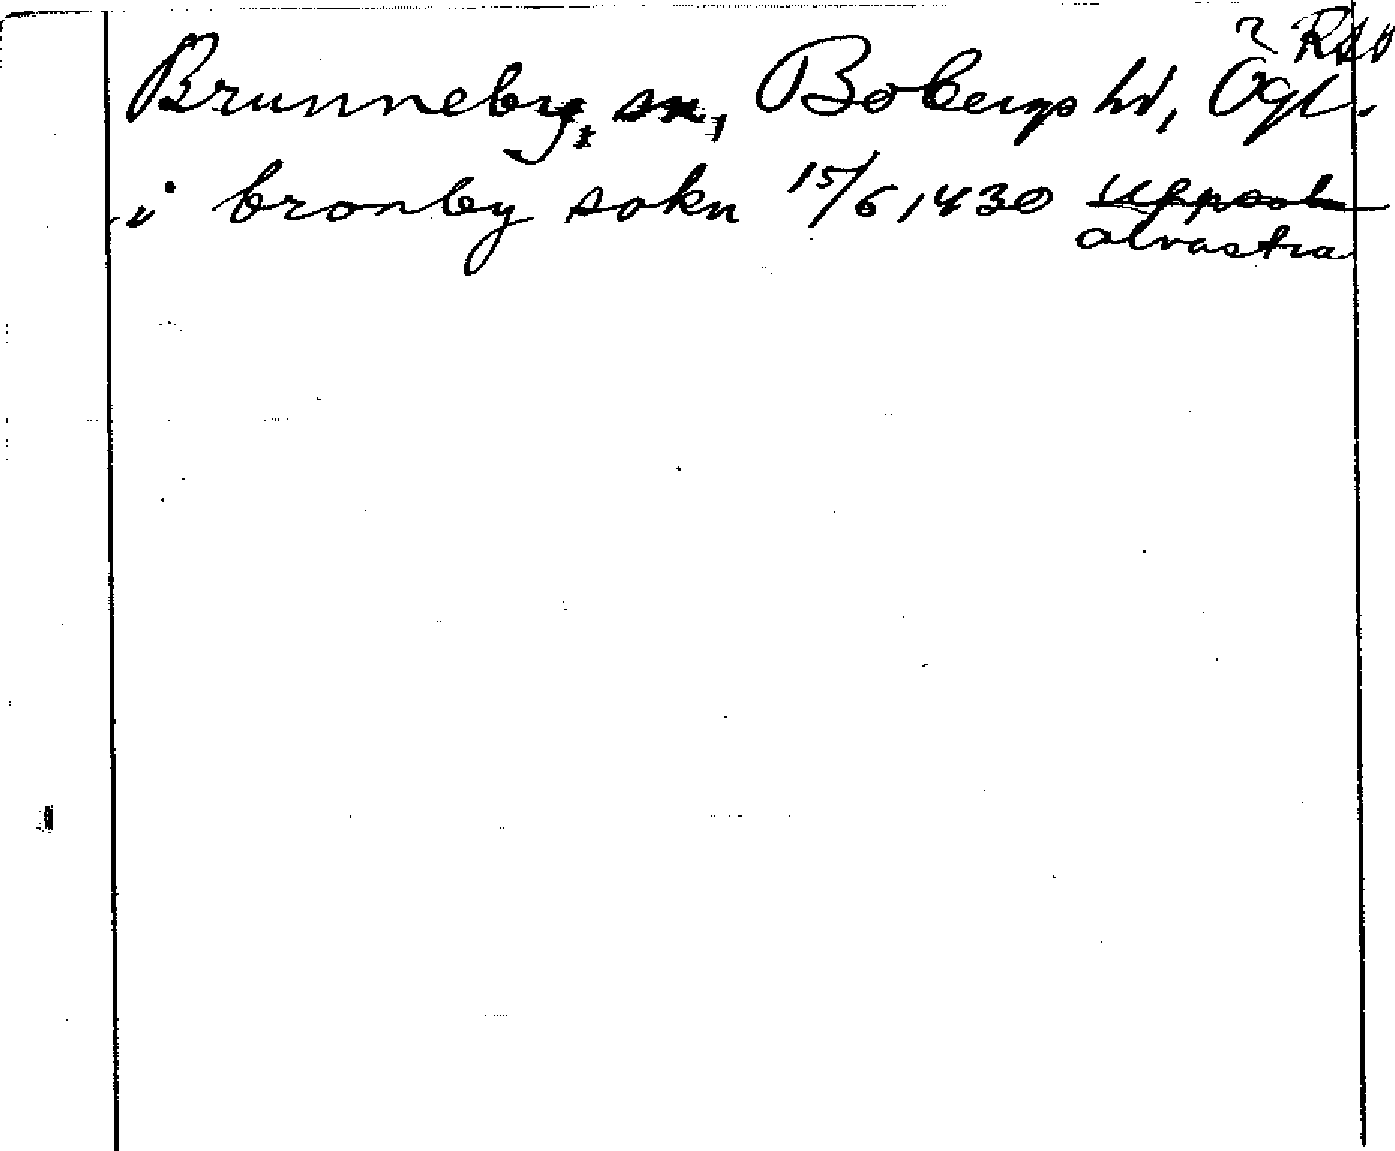 RAO
Brunneby, sn, Bobergs hd, Ögl.
i bronby sokn 15/6 1430 Uppsala
Alvastra